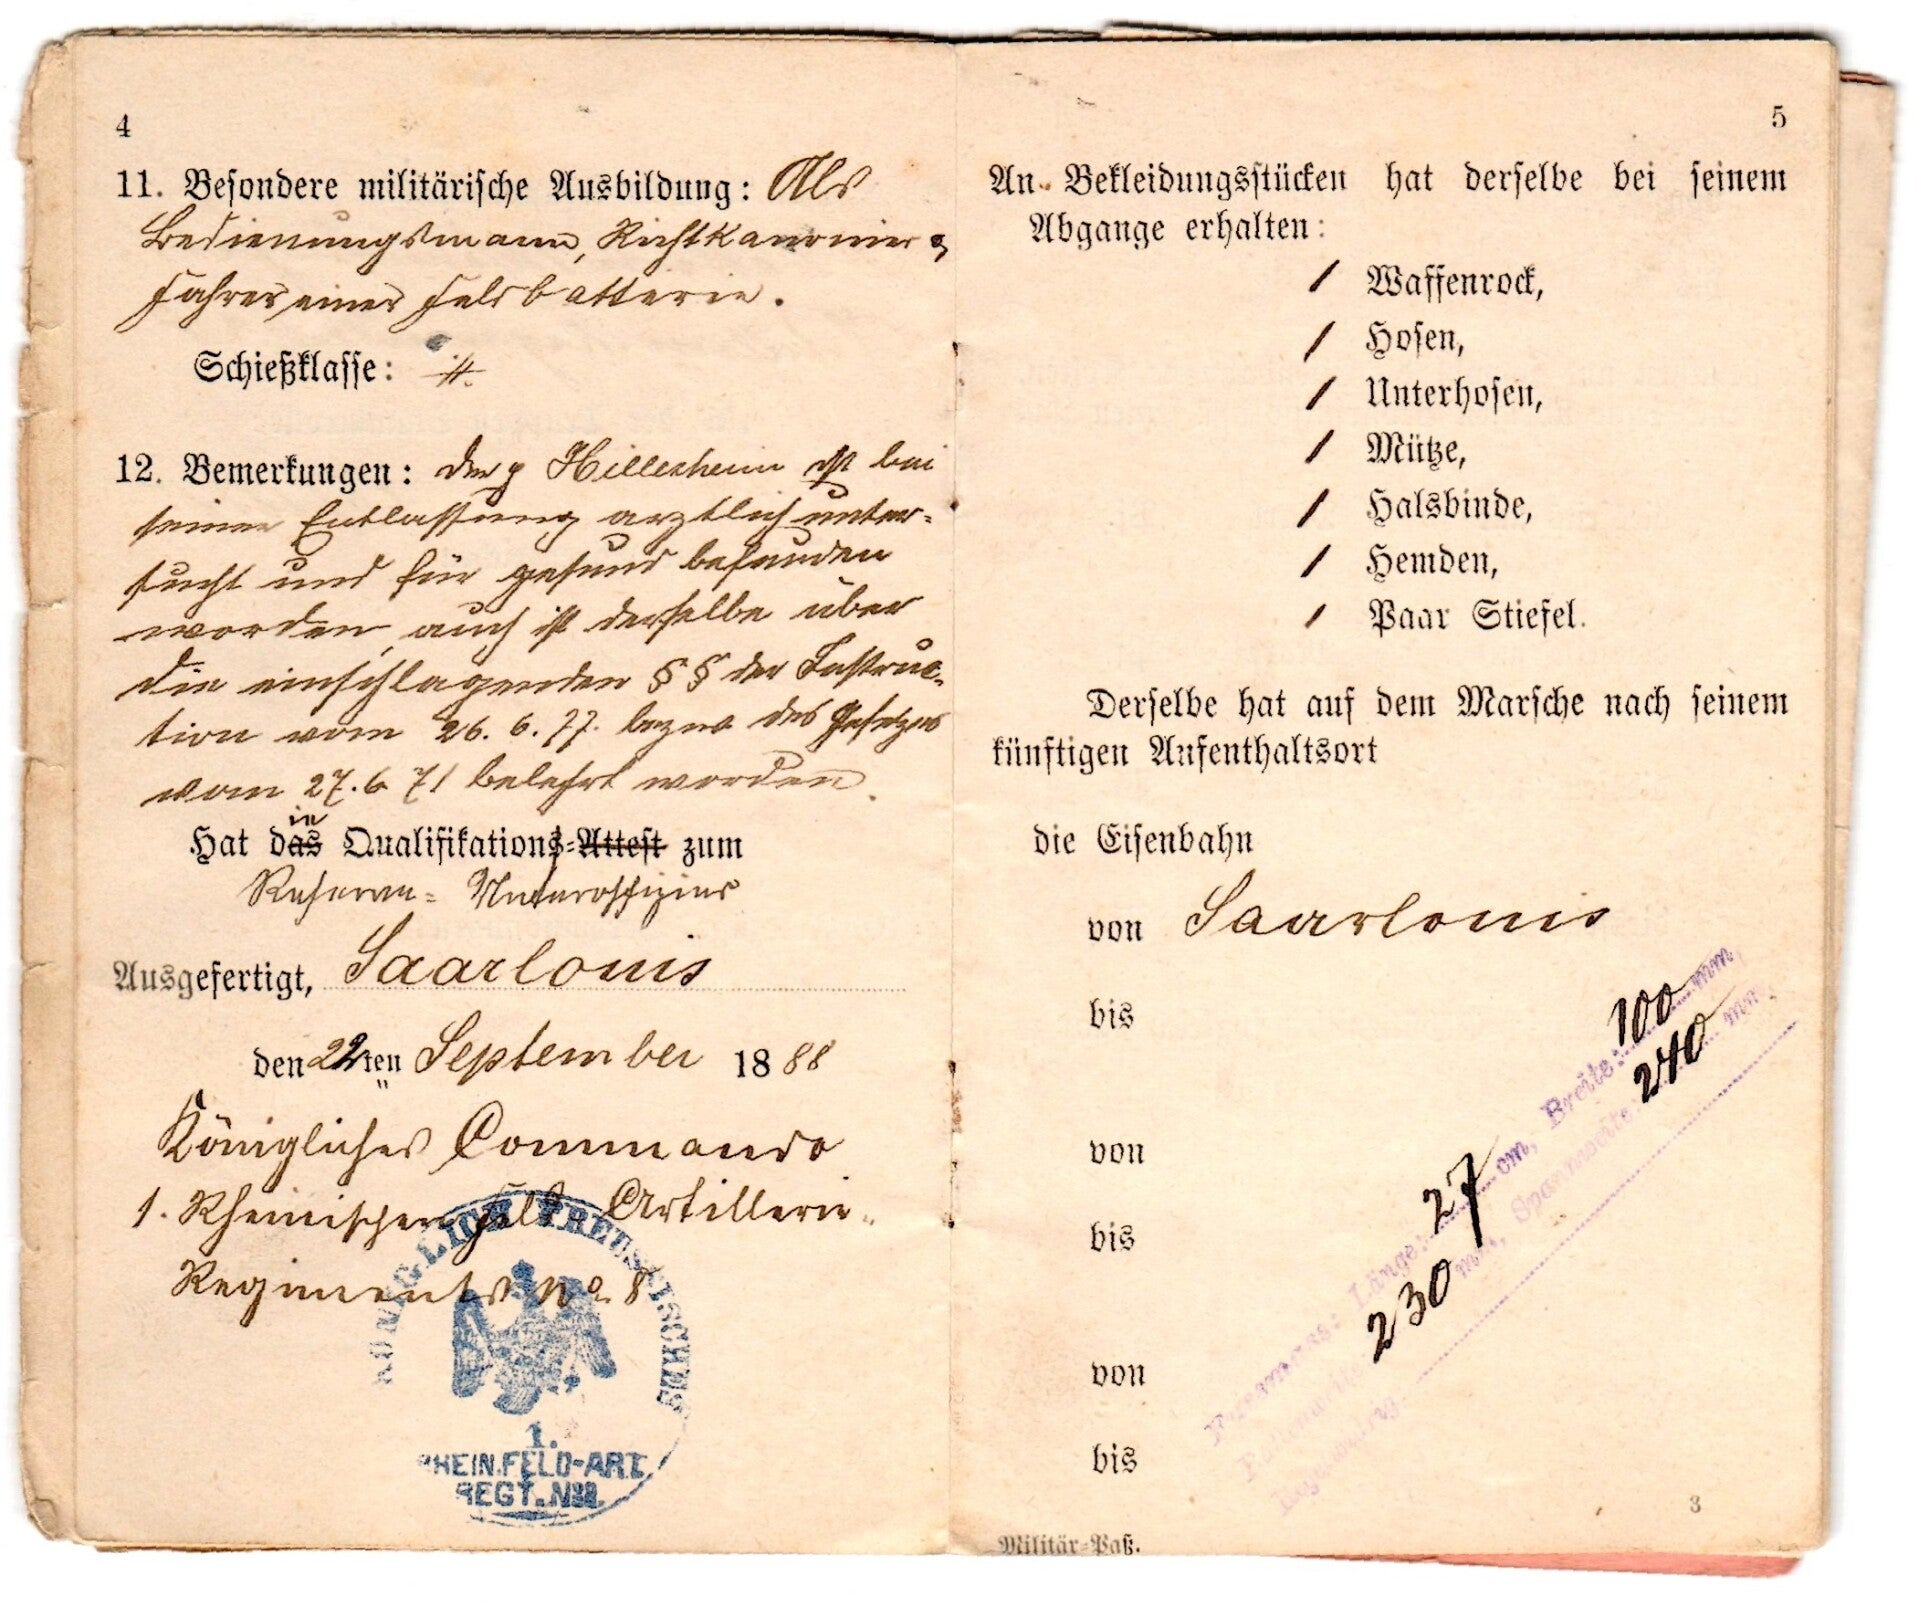 4
11. Besondere militärische Ausbildung: Als
Bedienungsmann, Richtkanonier &
Fahrer einer Feldbatterie.
Schießklasse: II.
12. Bemerkungen: Der p Hillesheim ist bei
seiner Entlassung arztlich unter-
sucht und für gesund befunden
worden, auch ist derselbe über
die einschlagenden §§ der Instruc-
tion vom 26. 6. 77. bezw des Gesetzes
vom 27. 6 71 belehrt worden.
in
Hat das Qualifikations-Attest zum
Reserve-Unteroffizier
Ausgefertigt, Saarlouis
den 22ten September 1888
Königliches Commando
1. Rheinischen Feld Artillerie-
Regiments No. 8
KÖNIGLICH PREUSSISCHES
1.
RHEIN. FELD-ART.
REGT. No 8.
5
An Bekleidungsstücken hat derselbe bei seinem
Abgange erhalten:
1 Waffenrock,
1 Hosen,
1 Unterhosen,
1 Mütze,
1 Halsbinde,
1 Hemden,
1 Paar Stiefel.
Derselbe hat auf dem Marsche nach seinem
künftigen Aufenthaltsort
die Eisenbahn
von Saarlouis
bis
von
bis
von
bis
Länge: 27 cm, Breite: 100 mm,
230 mm, Spannweite 240 mm.
3
Militär-Paß.